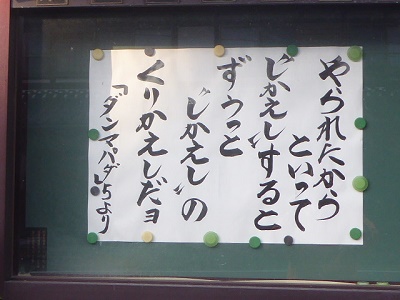 やられたから
といって
〝しかえし〟すると
ずうっと
〝しかえし〟の
くりかえしだヨ
「ダンマパダ」5より